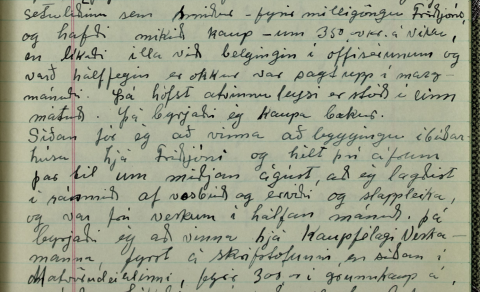 setuliðinu sem smiður - fyrir milligöngu Friðjóns,
og hafði mikið kaup - um 350 - kr. á viku,
en líkaði illa við belginginn í offiserunum og
varð hálffeginn er okkur var sagt upp í maí-
mánuði. Þá hófst atvinnuleysi er stóð í einn
mánuð. Þá byrjaði eg kaupa bækur.
Síðan fór eg að vinna að byggingu íbúðar-
húss hjá Friðjóni og hélt því áfram
þar til um miðjan ágúst, að eg lagðist
í rúmið af vosbúð og erviði og slappleika,
og var frá verkum í hálfan mánuð. Þá
byrjaði ég að vinna hjá Kaupfélagi Verka-
manna, fyrst á skrifstofunni, en síðan í
Matvörudeildinni, fyrir 300 - í grunnkaup á